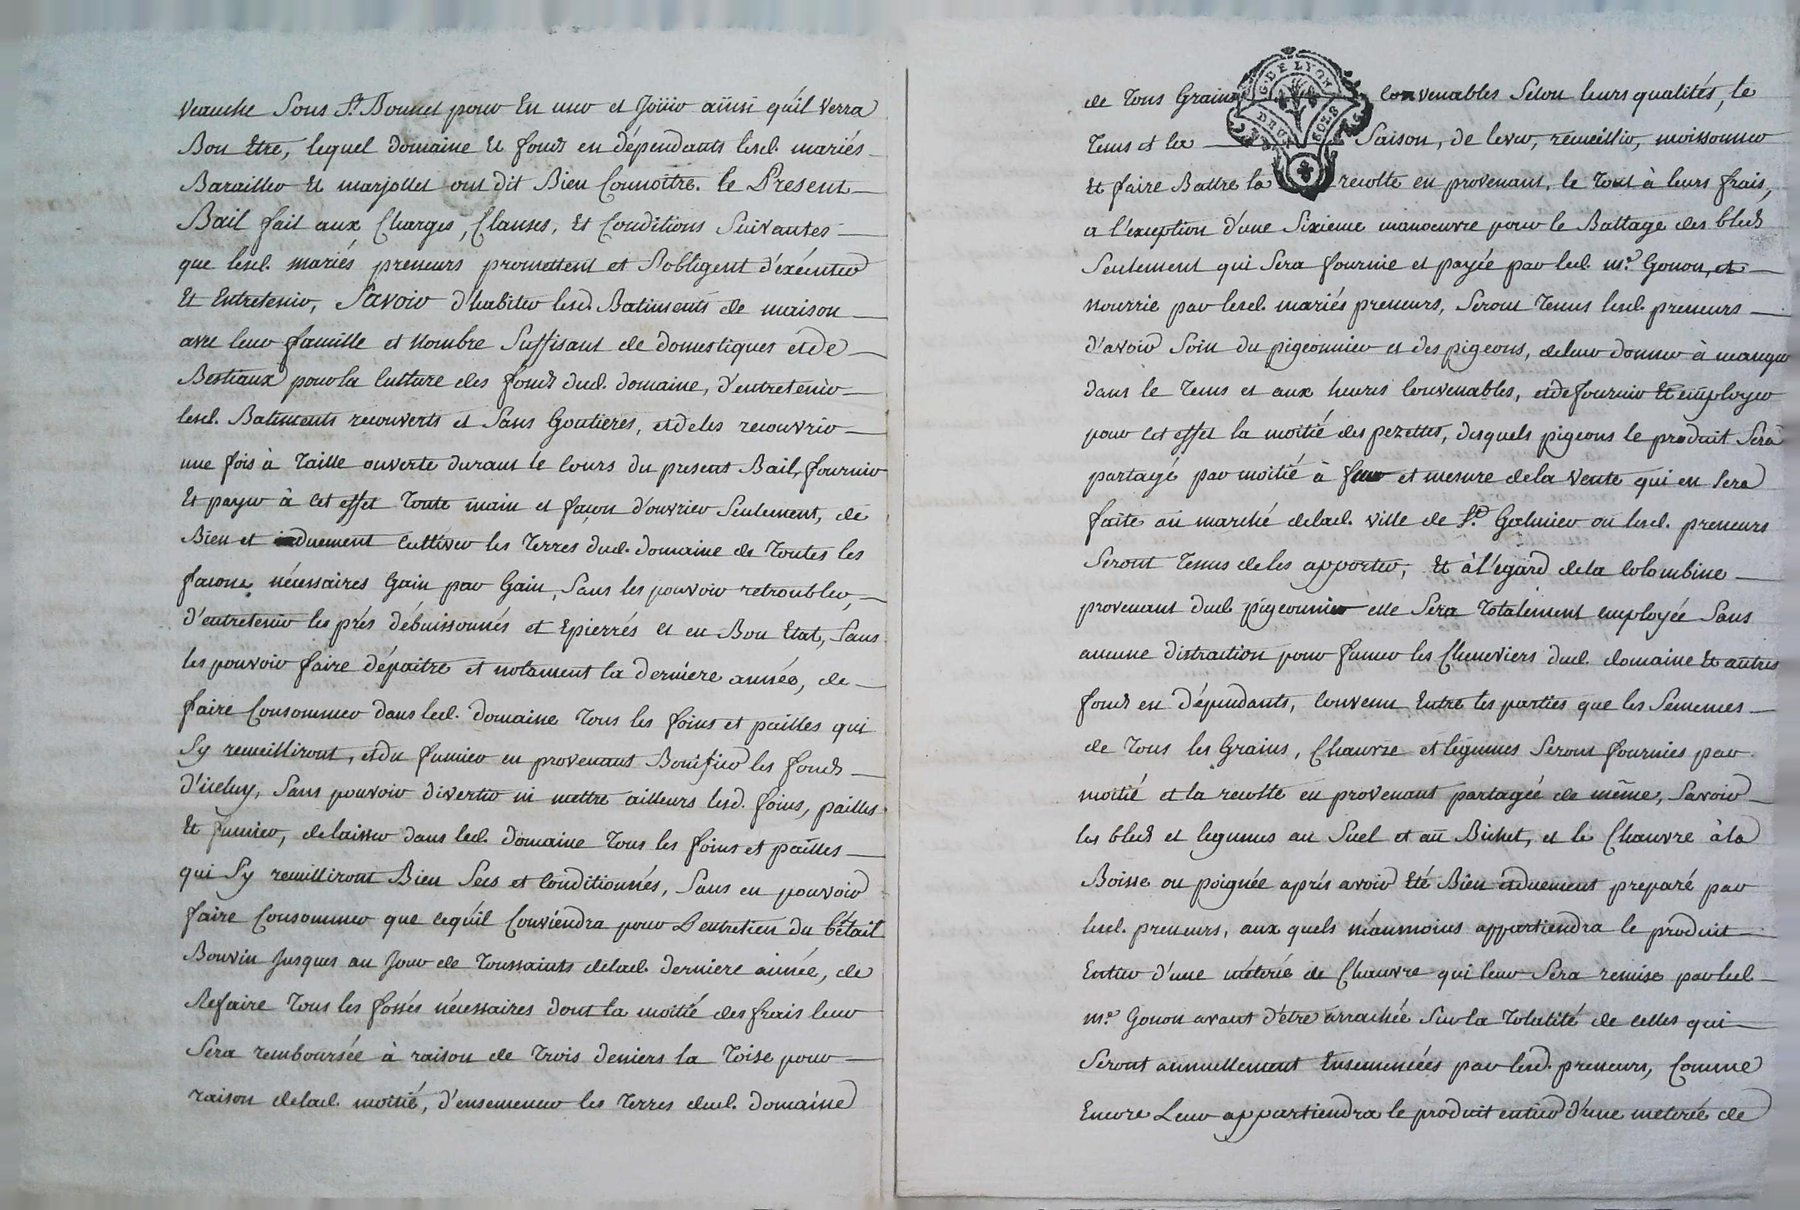 Veauche Sous St. Bonnet pour En user et Joüir aïnsi qu'il Verra
Bon Etre, lequel domaine Et fonds en dépendants lesd. mariés
Barailler Et marjollet ont dit Bien Connoitre. le Présent
Bail fait aux Charges, Clauses, Et Conditions Suivantes
que lesd. mariés preneurs promettent et S'obligent d'exécuter
Et Entretenir, Savoir d'habiter lesd. Batiments de maison
avec leur famille et Nombre Suffisant de domestiques et de
Bestiaux pour la Culture des fonds dud. domaine, d'entretenir
lesd. Batiments recouverts et Sans Goutieres, et de les recouvrir
une fois à Taille ouverte durant le Cours du present Bail, fournir
Et payer à Cet effet Toute main et façon d'ouvrier Seulement, de
Bien et duement Cultiver les Terres dud. domaine de Toutes les
façons nécessaires Gain par Gain, Sans les pouvoir retroubler,
d'entretenir les prés débuissonnés et Epierrés et en Bon Etat, Sans
les pouvoir faire dépaitre et notament la derniere année, de
faire Consommer dans led. domaine Tous les foins et pailles qui
Sy recueilliront, et du fumier en provenant Bonifier les fonds
d'iceluy, Sans pouvoir divertir ni mettre ailleurs lesd. foins, pailles
Et fumier, de laisser dans led. domaine Tous les foins et pailles
qui Sy recuilliront Bien Secs et Conditionnés, Sans en pouvoir
faire Consommer que ce qu'il Conviendra pour L'entretien du bétail
Bouvin Jusques au Jour de Toussaints de lad. derniere année, de
Refaire Tous les fossés nécessaires dont la moitié des frais leur
Sera remboursée à raison de Trois deniers la Toise pour
raison de lad. moitié, d'ensemencer les Terres dud. domaine
de Tous Grains Convenables Selon leurs qualités, le
Tems et la Saison, de lever, recueillir, moissonner
Et faire Battre la recolte en provenant, le Tout à leurs frais,
a l'exception d'une Sixieme manoeuvre pour le Battage des bleds
Seulement qui Sera fournie et payée par led. me. Gonon, et
Nourrie par lesd. mariés preneurs, Seront Tenus lesd. preneurs
d'avoir Soin du pigeonnier et des pigeons, de leur donner à manger
dans le Tems et aux heures Convenables, et de fournir Et employer
pour Cet effet la moitié des pezettes, desquels pigeons le produit Sera
partagé par moitié à fur et mesure de la Vente qui en Sera
faite au marché de lad. Ville de St. Galmier ou lesd. preneurs
Seront Tenus de les apporter, Et à l'égard de la Colombine
provenant dud. pigeonnier elle Sera Totalement employée Sans
aucune distraction pour fumer les Cheneviers dud. domaine Et autres
fonds en dépendants, Convenu Entre les parties que les Semences
de Tous les Grains, Chanvre et legumes Seront fournies par
moitié et la recolte en provenant partagée de même, Savoir
les bleds et legumes au Suel et au Bichet, et le Chanvre à la
Boisse ou poignée aprés avoir Eté Bien et duement preparé par
lesd. preneurs, aux quels néanmoins appartiendra le produit
Entier d'une méterée de Chanvre qui leur Sera remise par led.
me. Gonon avant d'être arrachée Sur la Totalité de Celles qui
Seront annuellement Ensemencées par lesd. preneurs, Comme
Encore Leur appartiendra le produit entier d'une meterée de
G. DE LYON
DEUX SOLS